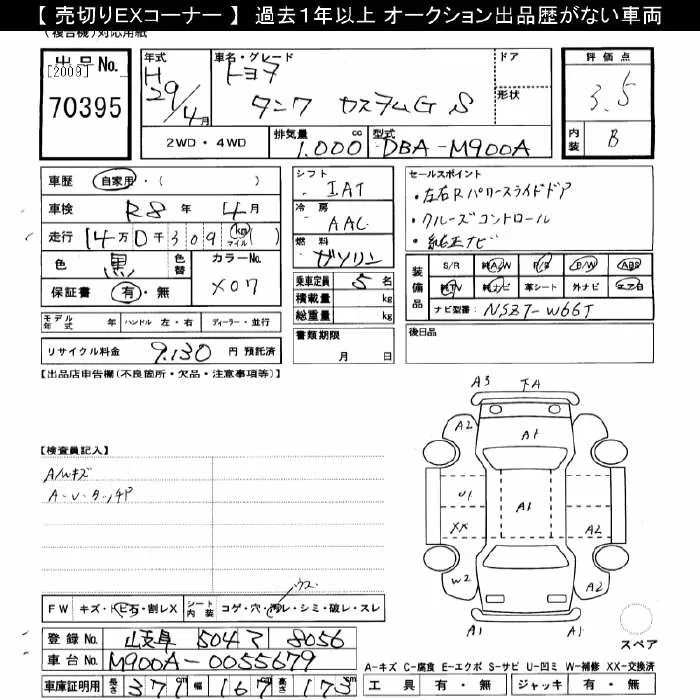 【 売切りEXコーナー 】 過去1年以上 オークション出品歴がない車両
(複合機)対応用紙
出品No.
[2009]
70395
年式
H 29/4月
車名・グレード
トヨタ
タンク カスタムG S
ドア
形状
評価点
3.5
内装
B
2WD・4WD
排気量 1,000 cc
型式 DBA-M900A
車歴 自家用・( )
車検 R8 年 4月
走行 14万0千309 (km マイル)( )
色 黒 色替
カラーNo. X07
保証書 有・無
シフト IAT
冷房 AAC
燃料 ガソリン
乗車定員 5 名
積載量 kg
総重量 kg
書類期限
月 日
セールスポイント
・左右Rパワースライドドア
・クルーズコントロール
・純正ナビ
装備品
S/R 純A/W P/S P/W ABS
純TV 純ナビ 革シート 外ナビ エアB
ナビ型番: NSZT-W66T
後日品
モデル年式 年 ハンドル 左・右 ディーラー・並行
リサイクル料金 9,130 円 預託済
【出品店申告欄(不良箇所・欠品・注意事項等)】
【検査員記入】
A/Wキズ
A・U・タッチP
FW キズ・トビ石・割レX
シート内装 コゲ・穴・汚レ・シミ・破レ・スレ
登録No. 岐阜 504 マ 8056
車台No. M900A-0055679
車庫証明用 長さ 371 cm 幅 167 cm 高さ 173 cm
A3 下A
A2 A1
U1 A1
XX A2
W2 A2
A1 A1
スペア
A-キズ C-腐食 E-エクボ S-サビ U-凹ミ W-補修 XX-交換済
工具 有・無 ジャッキ 有・無